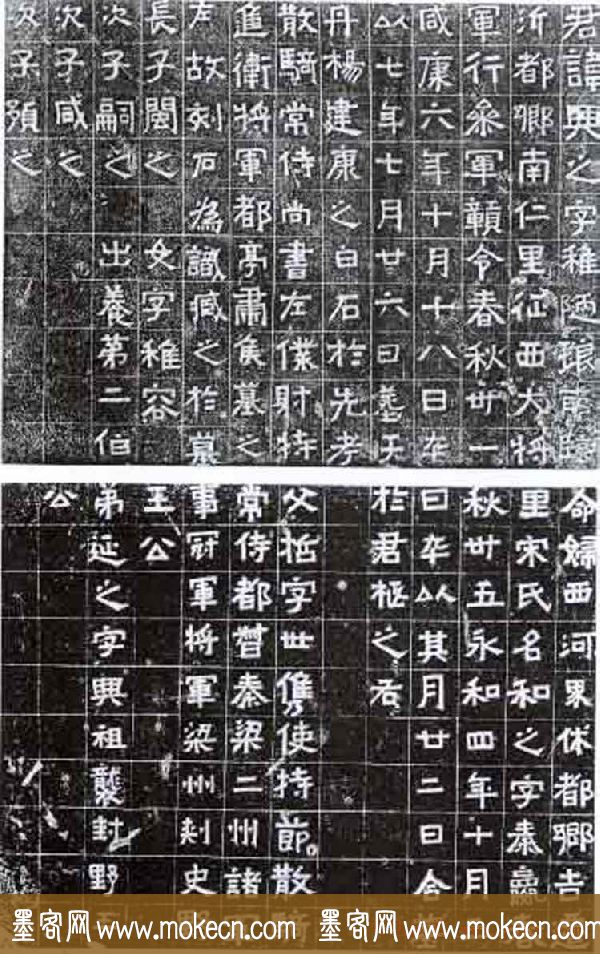 君諱興之字稚陋琅耶臨
沂都鄉南仁里征西大將
軍行參軍贛令春秋卅一
咸康六年十月十八日卒
以七年七月廿六日葬于
丹楊建康之白石於先考
散騎常侍尚書左僕射特
進衛將軍都亭肅侯墓之
左故刻石為識臧之於墓
長子閩之 女字稚容
次子嗣之 出養第二伯
次子咸之
次子預之
命婦西河界休都鄉吉
里宋氏名和之字秦嬴
秋卅五永和四年十月
日卒以其月廿二日合
於君柩之右
父哲字世儁使持節散
常侍都督秦梁二州諸
事冠軍將軍梁州刺史
王公
弟延之字興祖襲封野
公
墨客网 www.mokecn.com 墨客网 www.mokecn.com